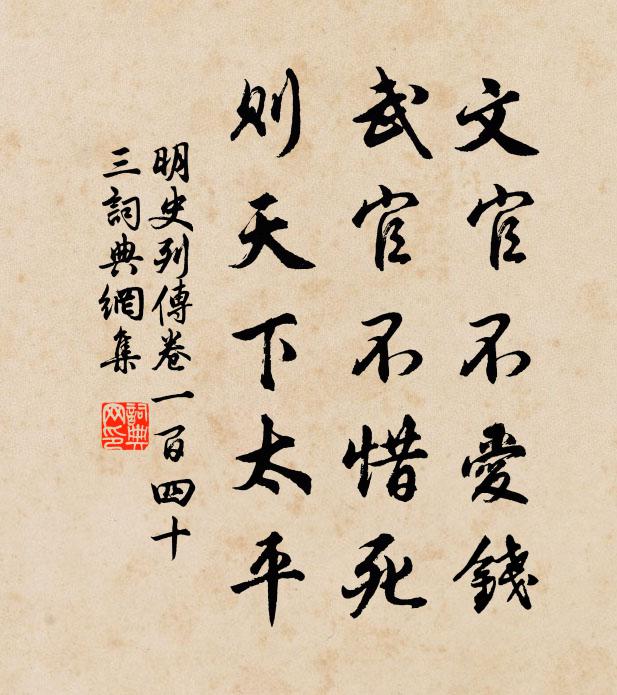 文官不愛錢
武官不惜死
則天下太平
明史列傳卷一百四十
三詞典網集
詞典
网印